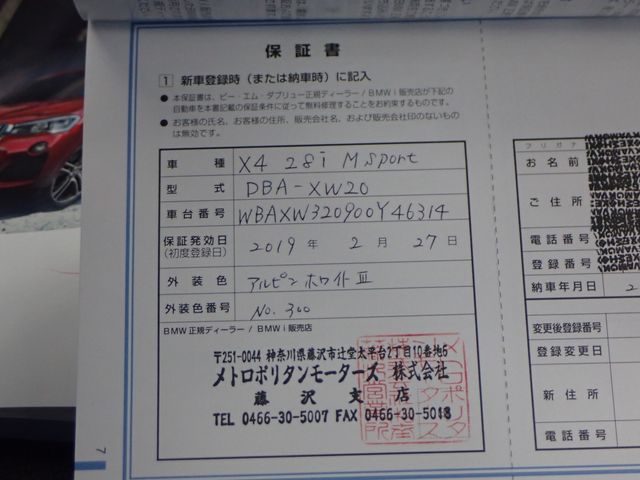 保証書
1 新車登録時（または納車時）に記入
● 本保証書は、ビー・エム・ダブリュー正規ディーラー / BMW i 販売店が下記の
自動車を本書記載の保証条件に従って無料修理することをお約束するものです。
● お客様の氏名、お客様の住所、販売会社名、および販売会社印のないもの
は無効です。
車種 X4 28i M Sport
型式 DBA-XW20
車台番号 WBAXW320900Y46314
保証発効日
(初度登録日) 2019 年 2 月 27 日
外装色 アルピンホワイトIII
外装色番号 No. 300
BMW 正規ディーラー / BMW i 販売店
〒251-0044 神奈川県藤沢市辻堂太平台2丁目10番地5
メトロポリタンモーターズ 株式会社
藤沢支店
TEL 0466-30-5007 FAX 0466-30-5018
7
フリガナ
お名前
ご住所
電話番号
登録番号
納車年月日 2
変更後登録番号
登録変更日
新住所
電話番号